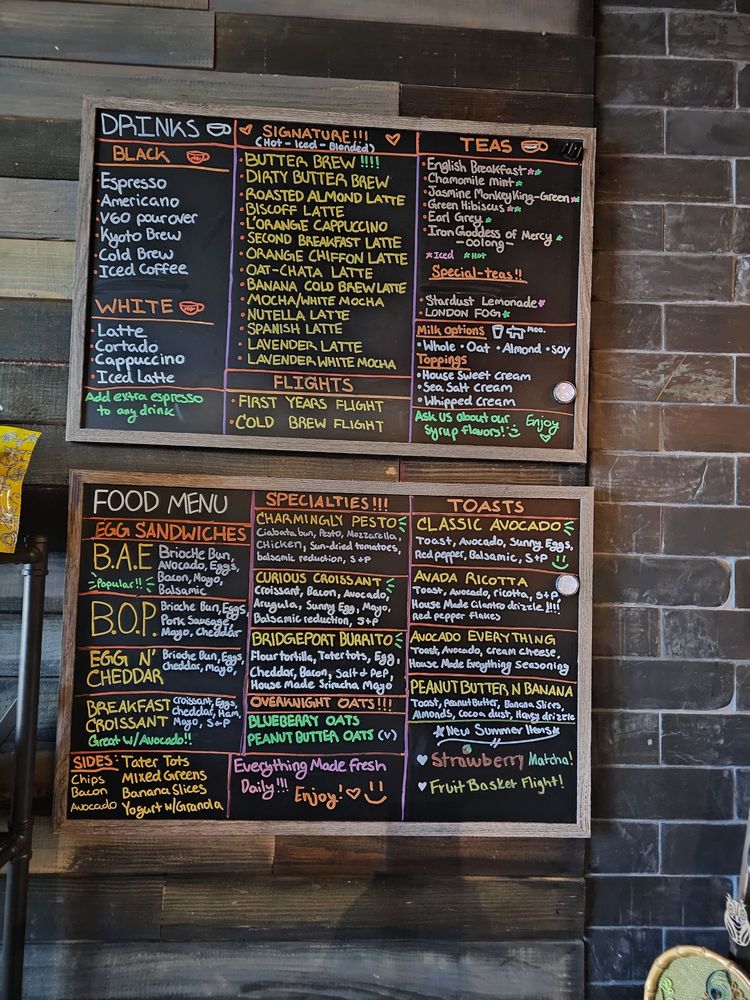 DRINKS
BLACK
• Espresso
• Americano
• V60 pour over
• Kyoto Brew
• Cold Brew
• Iced Coffee
WHITE
• Latte
• Cortado
• Cappuccino
• Iced Latte
Add extra espresso
to any drink
SIGNATURE!!!
(Hot - Iced - Blended)
• BUTTER BREW !!!!
• DIRTY BUTTER BREW
• ROASTED ALMOND LATTE
• BISCOFF LATTE
• L'ORANGE CAPPUCCINO
• SECOND BREAKFAST LATTE
• ORANGE CHIFFON LATTE
• OAT-CHATA LATTE
• BANANA COLD BREW LATTE
• MOCHA/WHITE MOCHA
• NUTELLA LATTE
• SPANISH LATTE
• LAVENDER LATTE
• LAVENDER WHITE MOCHA
FLIGHTS
• FIRST YEARS FLIGHT
• COLD BREW FLIGHT
TEAS
• English Breakfast **
• Chamomile mint *
• Jasmine Monkey King-Green *
• Green Hibiscus **
• Earl Grey *
• Iron Goddess of Mercy *
-oolong-
*Iced *Hot
Special-teas!!
• Stardust Lemonade *
• LONDON FOG *
Milk options Moo.
• Whole • Oat • Almond • soy
Toppings
• House Sweet Cream
• Sea Salt Cream
• Whipped Cream
Ask us about our
syrup flavors!
Enjoy
FOOD MENU
EGG SANDWICHES
B.A.E
Popular!!
Brioche Bun,
Avocado, Eggs,
Bacon, Mayo,
Balsamic
B.O.P.
Brioche Bun, Eggs,
Pork Sausage,
Mayo, Cheddar
EGG N'
CHEDDAR
Brioche Bun, Eggs,
cheddar, mayo,
BREAKFAST
CROISSANT
Croissant, Eggs,
cheddar, Ham,
Mayo, S+P
Great w/Avocado!!
SIDES:
Chips
Bacon
Avocado
Tater Tots
Mixed Greens
Banana Slices
Yogurt w/Granola
SPECIALTIES!!!
CHARMINGLY PESTO
Ciabata bun, Pesto, Mozzarella,
Chicken, Sun-dried tomatoes,
balsamic reduction, S+P
CURIOUS CROISSANT
Croissant, Bacon, Avocado,
Arugula, Sunny Egg, Mayo,
Balsamic reduction, S+P
BRIDGEPORT BURRITO
Flour tortilla, Tater tots, Egg,
Cheddar, Bacon, Salt & Pep,
House Made Sriracha Mayo
OVERNIGHT OATS!!!
BLUEBERRY OATS
PEANUT BUTTER OATS (V)
Everything Made Fresh
Daily!!!
Enjoy!
TOASTS
CLASSIC AVOCADO
Toast, Avocado, Sunny Eggs,
Red pepper, Balsamic, S+P
AVADA RICOTTA
Toast, Avocado, ricotta, S+P
House Made Cilantro drizzle !!!!
red pepper flakes
AVOCADO EVERYTHING
Toast, Avocado, cream cheese,
House Made Everything Seasoning
PEANUT BUTTER N BANANA
Toast, Peanut Butter, Banana Slices,
Almonds, Cocoa dust, Honey drizzle
*New Summer Items*
♥ Strawberry Matcha!
♥ Fruit Basket Flight!